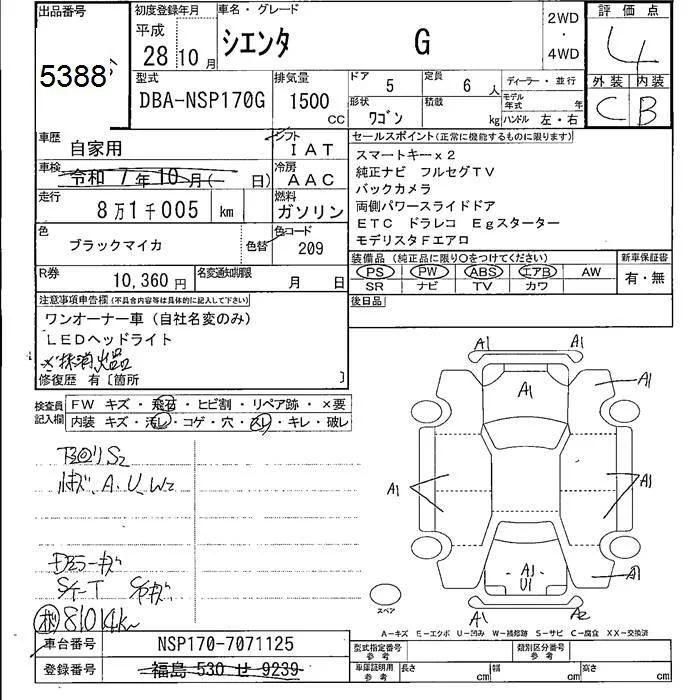 出品番号
5388
初度登録年月
平成
28 10 月
車名・グレード
シエンタ G
2WD
・
4WD
評価点
4
外装 内装
C B
型式
DBA-NSP170G
排気量
1500 CC
ドア 5
定員 6 人
形状 ワゴン
積載 kg
ディーラー・並行
モデル年式 年
ハンドル 左・右
車歴
自家用
シフト
IAT
車検
令和 7 年 10 月( 日)
冷房
AAC
走行
8万1千005 km
燃料
ガソリン
色
ブラックマイカ
色替
色コード
209
R券
10,360 円
名変通知期限
月 日
セールスポイント(正常に機能するものに限ります)
スマートキーx2
純正ナビ フルセグTV
バックカメラ
両側パワースライドドア
ETC ドラレコ Egスターター
モデリスタFエアロ
装備品 (純正品に限り○をつけてください)
PS PW ABS エアB AW
SR ナビ TV カワ
新車保証書
有・無
後日品
注意事項申告欄(不具合内容等は具体的に記入して下さい)
ワンオーナー車(自社名変のみ)
LEDヘッドライト
修復歴 有〔箇所 〕
検査員
記入欄
FW キズ・飛石・ヒビ割・リペア跡・×要
内装 キズ・汚レ・コゲ・穴・スレ・キレ・破レ
A.U.W2
81014km
A1 A1
A1
A1
A1
A1
A1
A1
U1
A1 A2
スペア
A-キズ E-エクボ U-凹み W-補修跡 S-サビ C-腐食 XX-交換済
車台番号
NSP170-7071125
登録番号
福島 530 せ 9239
型式指定番号
参考
類別区分番号
参考
車庫証明用
参考
長さ cm
幅 cm
高さ cm